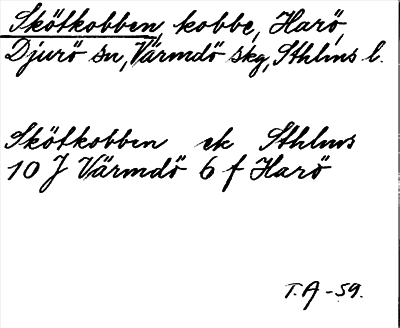 Skötkobben, kobbe, Harö,
Djurö sn, Värmdö skg, Sthlms l.
Skötkobben ek Sthlms
10 J Värmdö 6 f Harö
T.A -59.